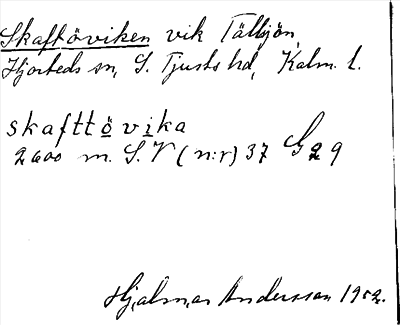 Skaftöviken vik Tällsjön,
Hjorteds sn, S. Tjusts hd, Kalm. l.
skafttövika
2600 m. S.V (n:r) 37 G 29
Hjalmar Andersson 1952.